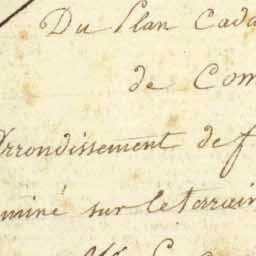 Du Plan Cada
de Com
Arrondissement de f
miné sur le terrain